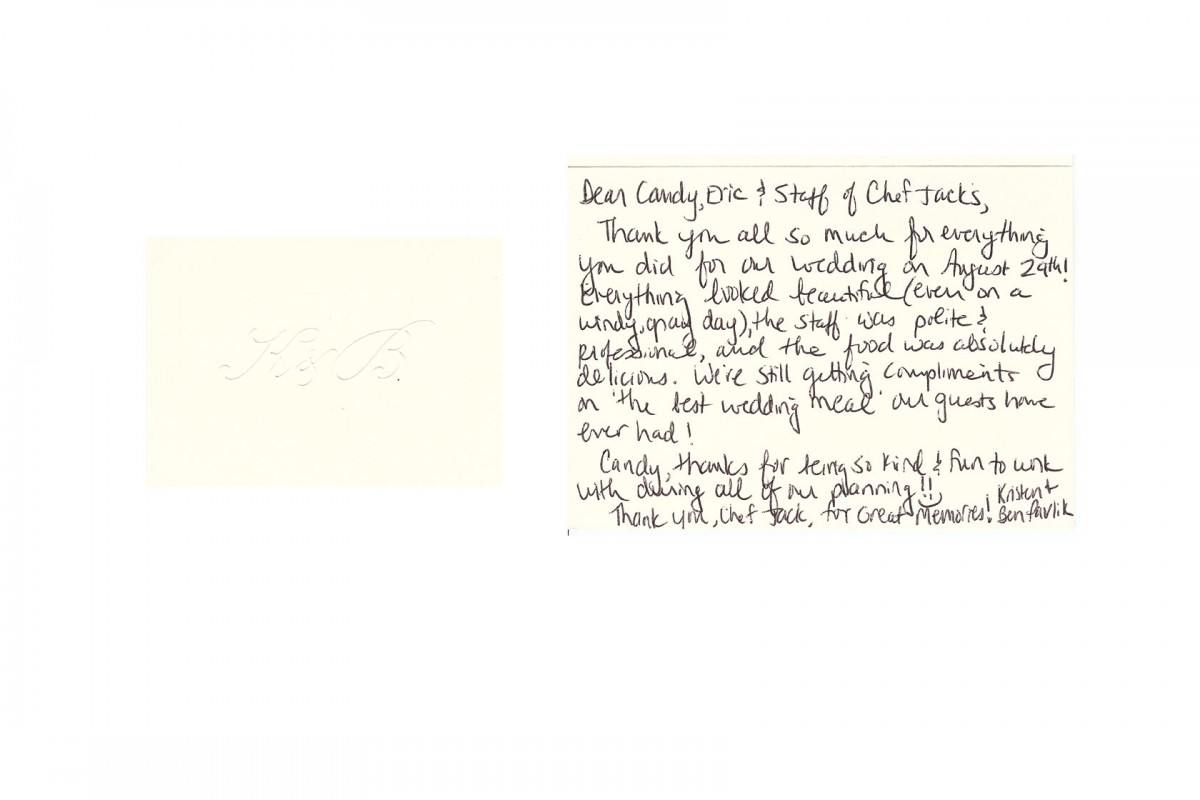 K & B
Dear Candy, Eric & Staff of Chef Jack's,
Thank you all so much for everything
you did for our wedding on August 29th!
Everything looked beautiful (even on a
windy, gray day), the staff was polite &
professional, and the food was absolutely
delicious. We're still getting compliments
on 'the best wedding meal' our guests have
ever had!
Candy, thanks for being so kind & fun to work
with during all of our planning!!
Thank you, Chef Jack, for Great Memories!
Kristen +
Ben Pavlik